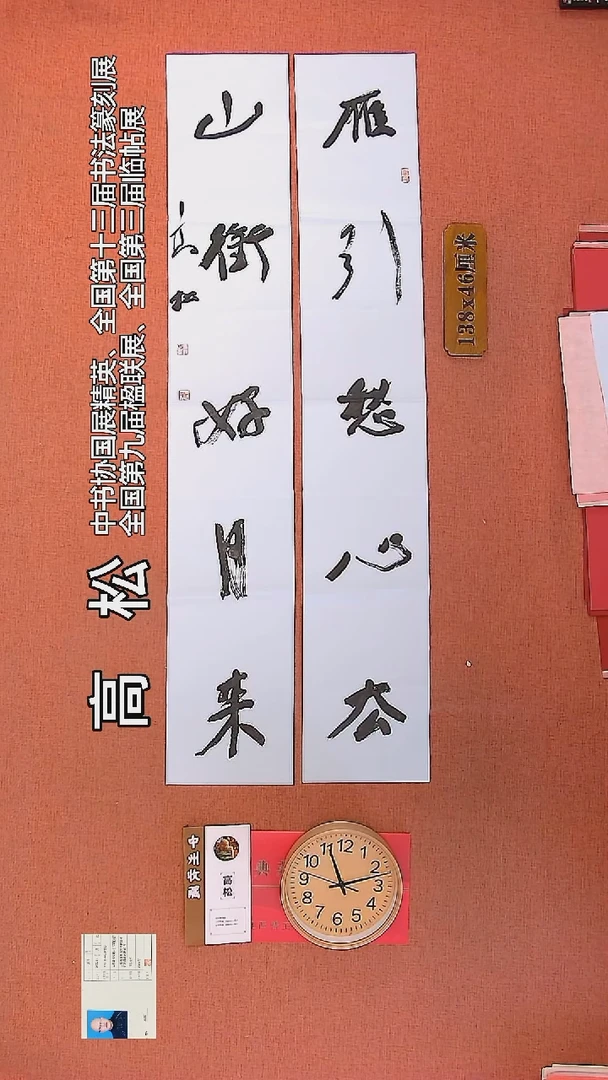 雁引愁心去
山銜好月来
高 松
中书协国展精英、全国第十三届书法篆刻展
全国第九届楹联展、全国第三届临帖展
138x46厘米
高松
12
1
2
3
4
5
6
7
8
9
10
11